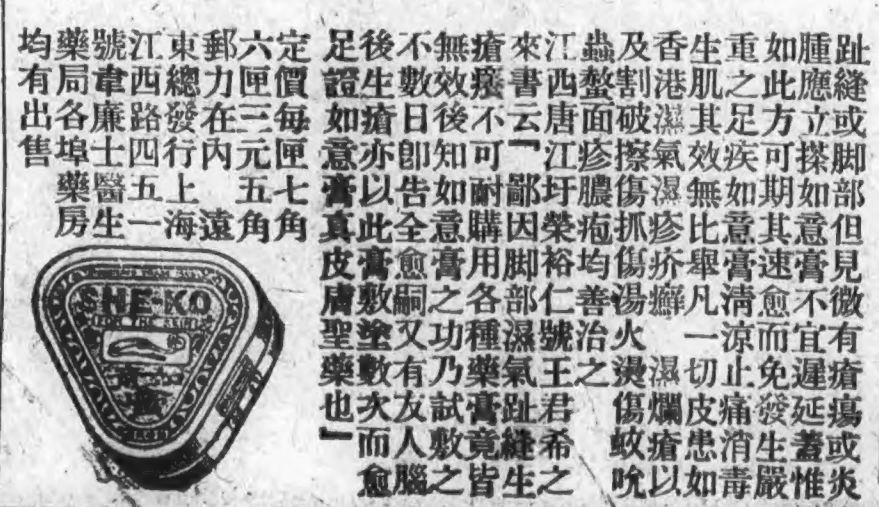 趾縫或脚部但見微有瘡瘍或炎
腫應立搽如意膏不宜遲延蓋惟
如此方可期其速愈而免發生嚴
重之足疾如意膏淸涼止痛消毒
生肌其效無比舉凡一切皮患如
香港濕氣濕疹疥癬 濕爛瘡以
及割破擦傷抓傷湯火燙傷蚊吮
蟲螫面疹膿疱均善治之
江西唐江圩榮裕仁號王君希之
來書云「鄙因脚部濕氣趾縫生
瘡癢不可耐購用各種藥膏竟皆
無效後知如意膏之功乃試敷之
不數日卽告全愈嗣又有友人腦
後生瘡亦以此膏敷塗數次而愈
足證如意膏真皮膚聖藥也」
定價每匣七角
六匣三元五角
郵力在內 遠
東總發行上海
江西路四五一
號韋廉士醫生
藥局各埠藥房
均有出售
SHE-KO
FOR THE SKIN